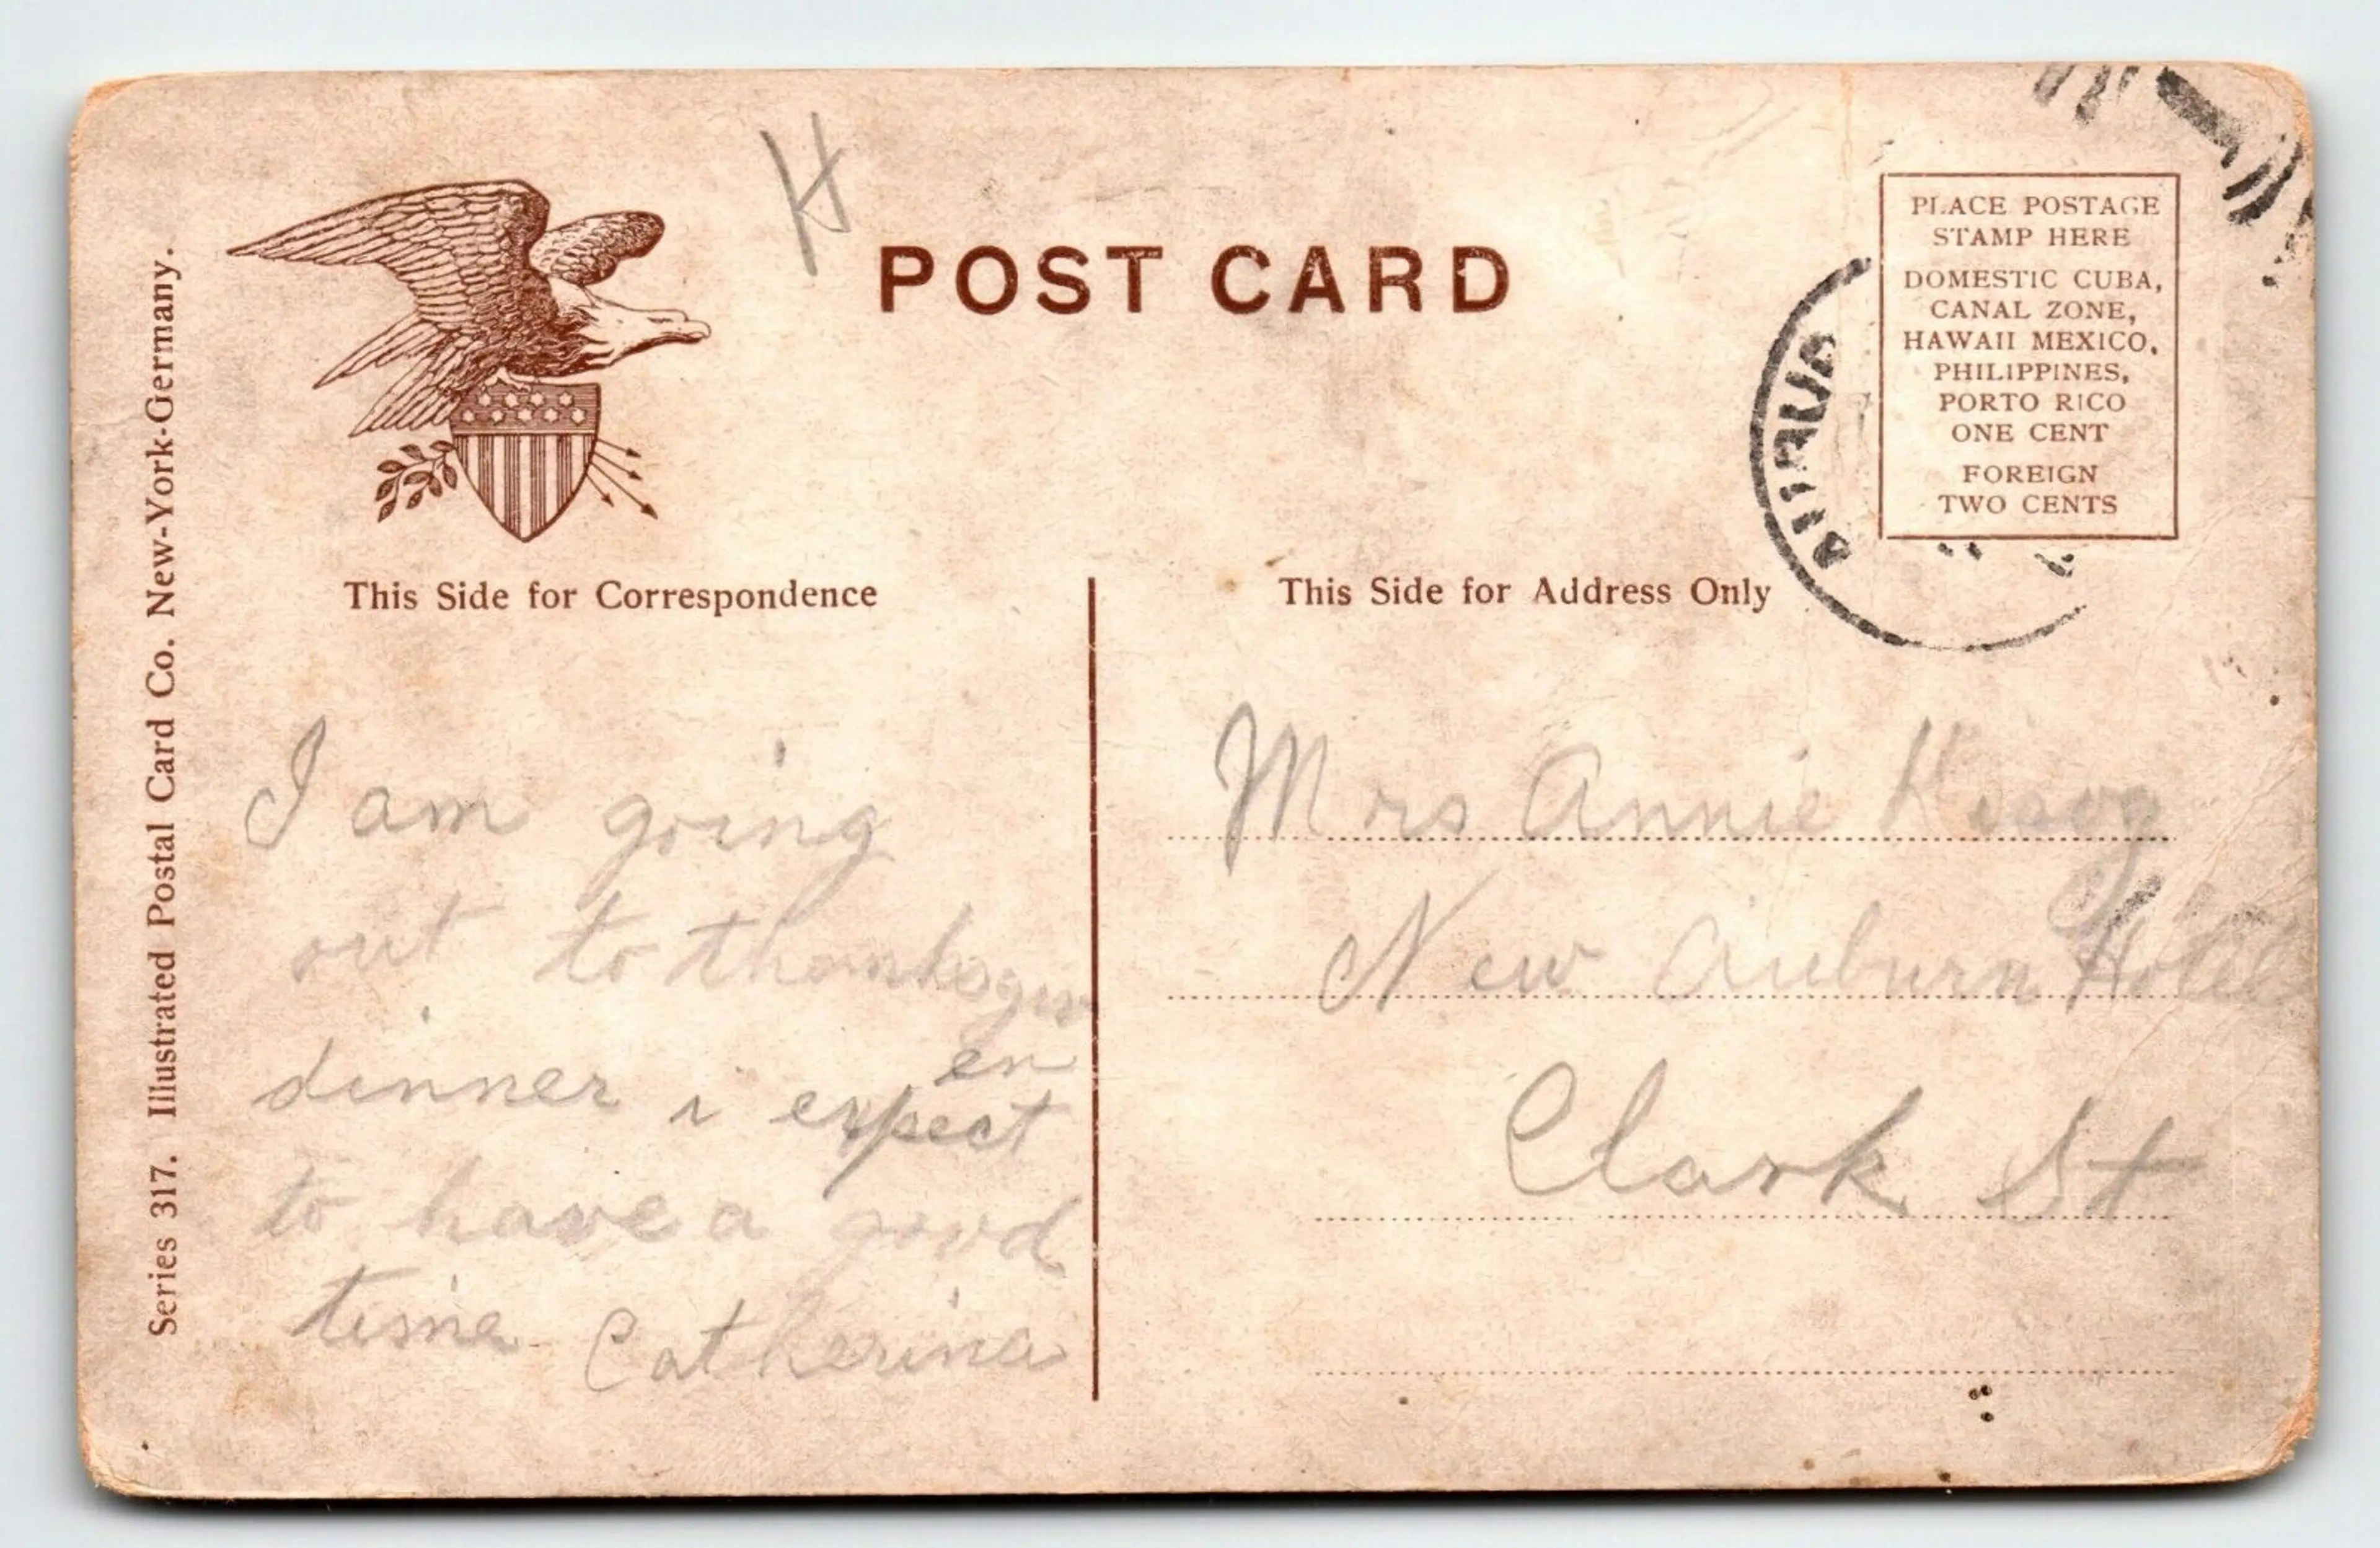 H
POST CARD
PLACE POSTAGE
STAMP HERE
DOMESTIC CUBA,
CANAL ZONE,
HAWAII MEXICO,
PHILIPPINES,
PORTO RICO
ONE CENT
FOREIGN
TWO CENTS
This Side for Correspondence
I am going
out to thanksgiv
en
dinner i expect
to have a good
time Catherine
This Side for Address Only
Mrs Annie
New Auburn Hotel
Clark St
Series 317. Illustrated Postal Card Co. New-York-Germany.